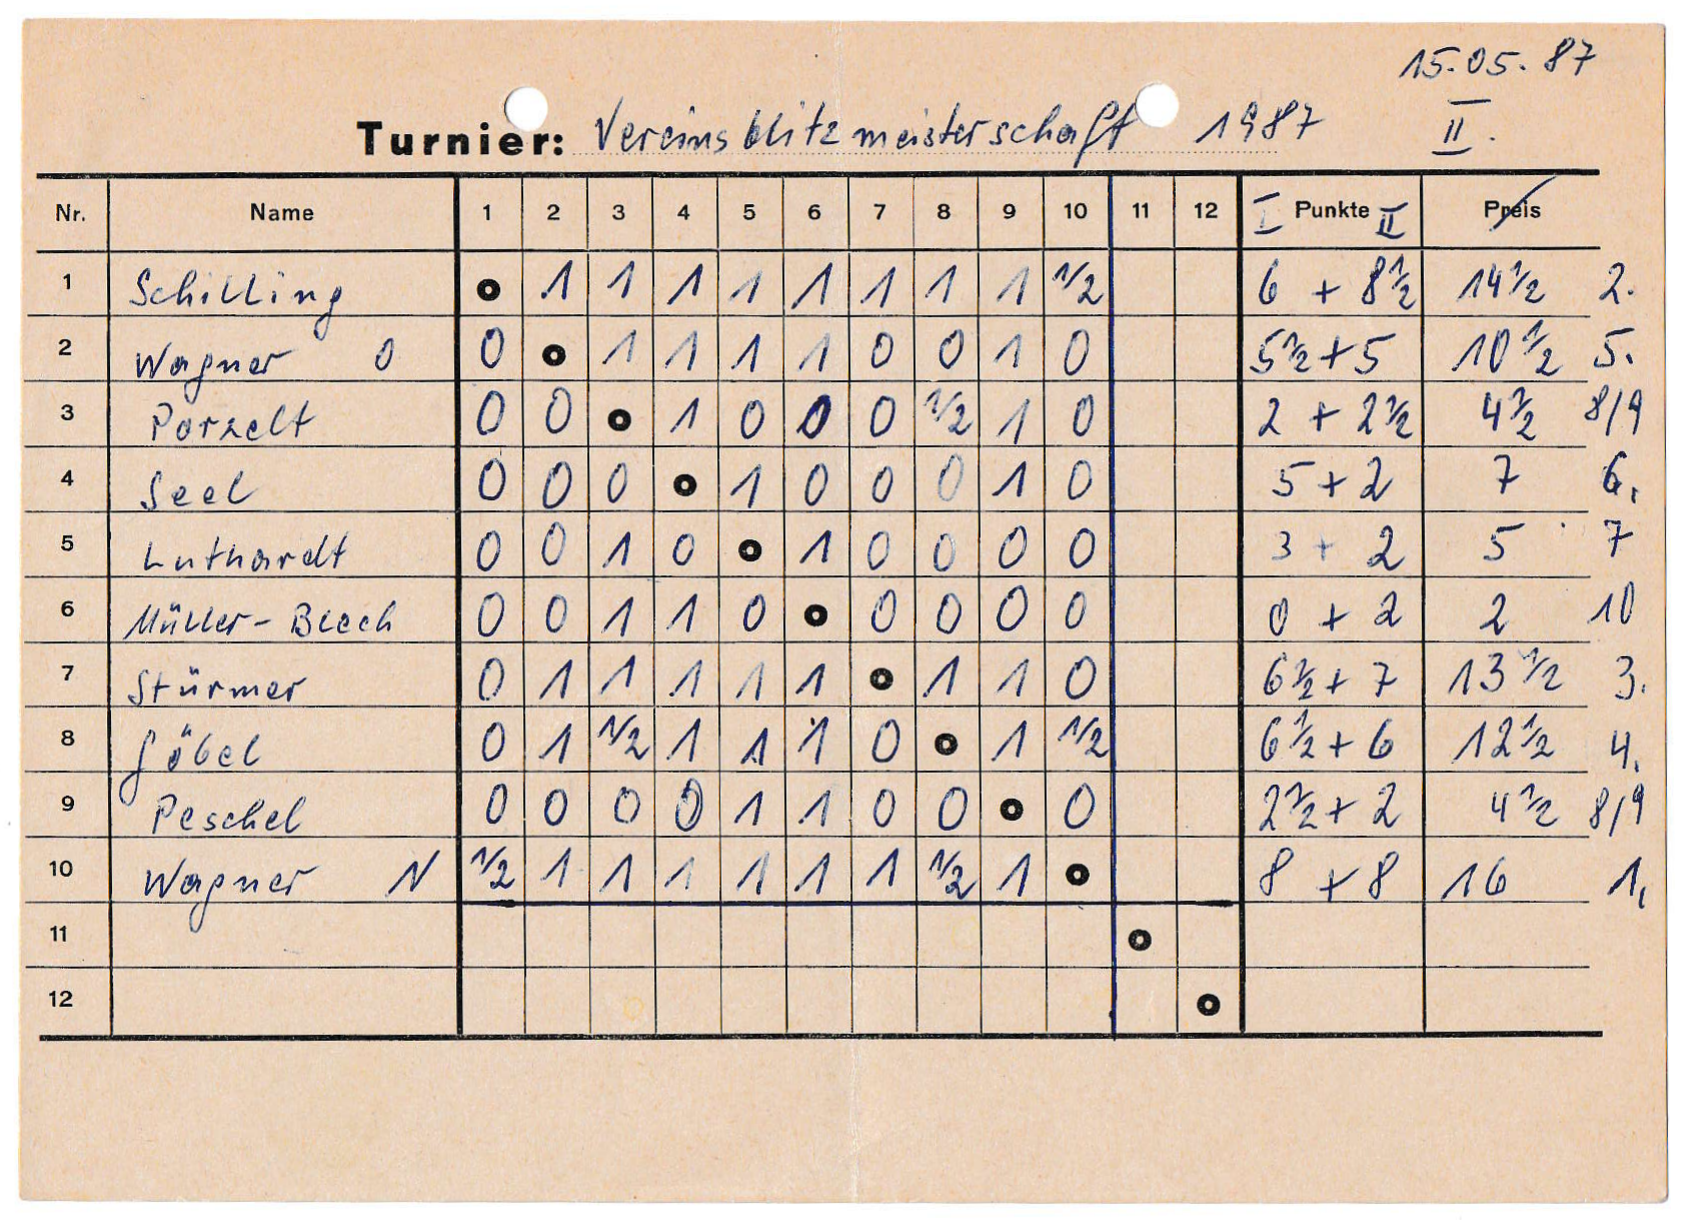 15.05.87
Turnier: Vereinsblitzmeisterschaft 1987 II.
Nr. Name 1 2 3 4 5 6 7 8 9 10 11 12 I Punkte II Preis
1 Schilling 1 1 1 1 1 1 1 1 1/2 6 + 8 1/2 14 1/2 2.
2 Wagner O 0 1 1 1 1 0 0 1 0 5 1/2 + 5 10 1/2 5.
3 Porzelt 0 0 1 0 0 0 1/2 1 0 2 + 2 1/2 4 1/2 8/9
4 Seel 0 0 0 1 0 0 0 1 0 5 + 2 7 6.
5 Luthardt 0 0 1 0 1 0 0 0 0 3 + 2 5 7
6 Müller-Blech 0 0 1 1 0 0 0 0 0 0 + 2 2 10
7 Stürmer 0 1 1 1 1 1 1 1 0 6 1/2 + 7 13 1/2 3.
8 Göbel 0 1 1/2 1 1 1 0 1 1/2 6 1/2 + 6 12 1/2 4.
9 Peschel 0 0 0 0 1 1 0 0 0 2 1/2 + 2 4 1/2 8/9
10 Wagner N 1/2 1 1 1 1 1 1 1/2 1 8 + 8 16 1.
11
12